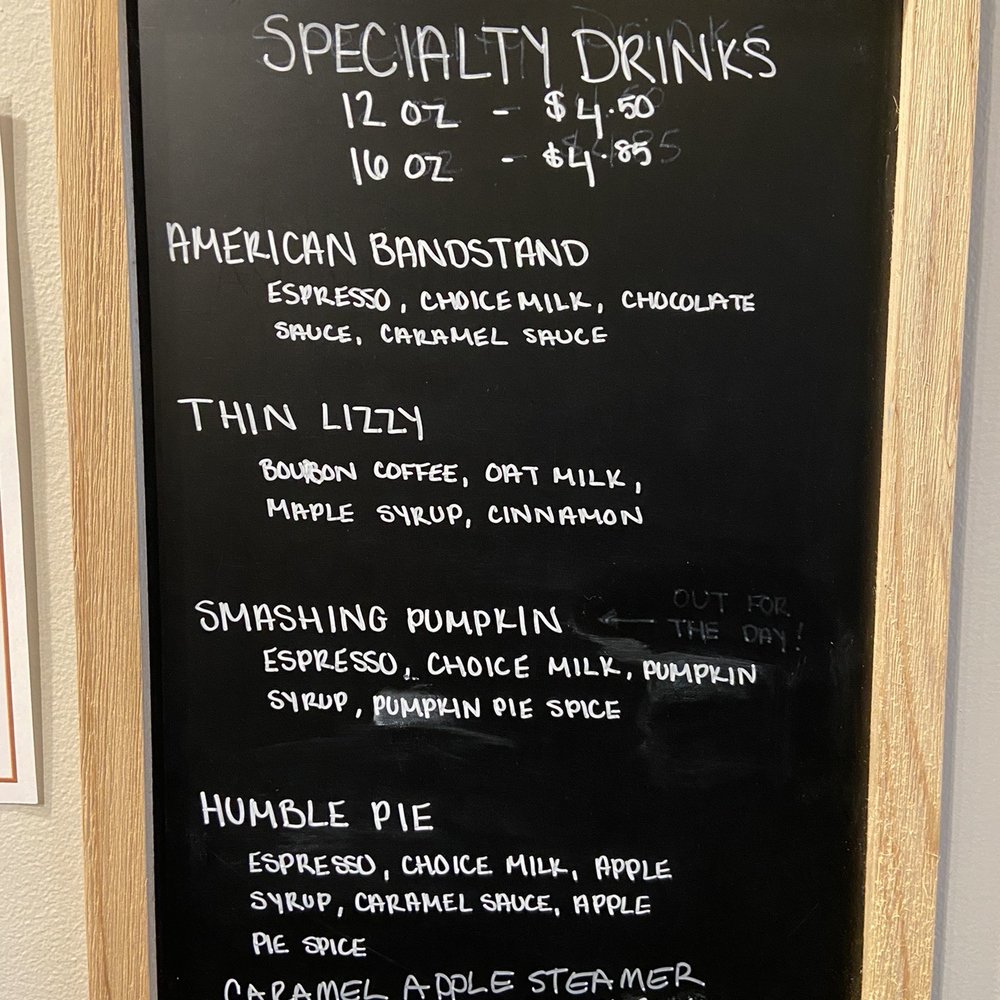 SPECIALTY DRINKS
12 OZ - $4.50
16 OZ - $4.85
AMERICAN BANDSTAND
ESPRESSO, CHOICE MILK, CHOCOLATE
SAUCE, CARAMEL SAUCE
THIN LIZZY
BOURBON COFFEE, OAT MILK,
MAPLE SYRUP, CINNAMON
SMASHING PUMPKIN ← OUT FOR
THE DAY!
ESPRESSO, CHOICE MILK, PUMPKIN
SYRUP, PUMPKIN PIE SPICE
HUMBLE PIE
ESPRESSO, CHOICE MILK, APPLE
SYRUP, CARAMEL SAUCE, APPLE
PIE SPICE
CARAMEL APPLE STEAMER